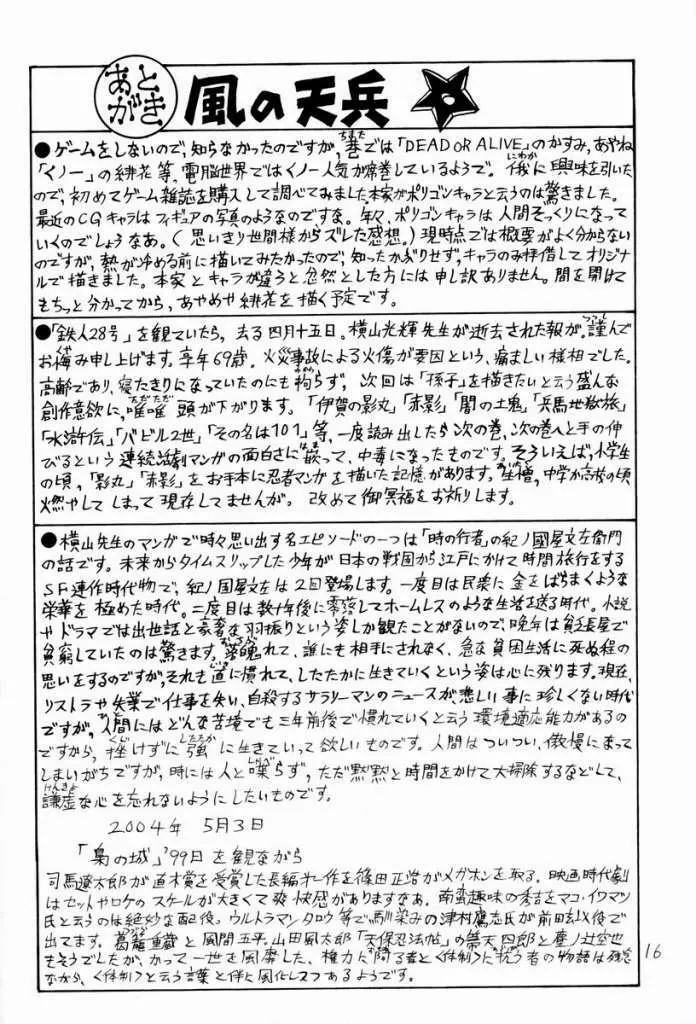 あとがき 風の天兵
●ゲームをしないので、知らなかったのですが、巷では「DEAD OR ALIVE」のかすみ、あやね
「くノ一」の緋花 等、電脳世界ではくノ一人気が席巻しているようで。俄に興味を引いた
ので、初めてゲーム雑誌を購入して調べてみました本家がポリゴンキャラと云うのは驚きました。
最近のCGキャラは フィギュアの写真のようなのですな。年々、ポリゴンキャラは 人間そっくりになって
いくのでしょうなあ。(思いきり世間様からズレた感想。)現時点では概要がよく分からない
のですが、熱が冷める前に描いてみたかったので、知ったかぶりせず、キャラのみ拝借して オリジナ
ルで描きました。本家 とキャラが違うと 忽然とした方には申し訳ありません。間を開けて
もちっと分かってから、あやめや 緋花を 描く予定です。
●「鉄人28号」を観ていたら、去る四月十五日。横山光輝先生が逝去された報が。謹んで
お悔み申し上げます。享年69歳。火災事故による火傷が要因という、痛ましい様相でした。
高齢であり、寝たきりになっていたのにも拘らず、次回は「孫子」を描きたいと云う盛んな
創作意欲に、唯唯 頭が下がります。「伊賀の影丸」「赤影」「闇の土鬼」「兵馬地獄旅」
「水滸伝」「バビル2世」「その名は101」等、一度読み出したら次の巻、次の巻へと手の伸
びるという 連続活劇マンガの面白さに嵌って、中毒になったものです。そういえば、小学生
の頃、「影丸」「赤影」をお手本に忍者マンガを描いた記憶があります。生憎、中学か高校の頃
燃やして しまって現存してませんが。改めて御冥福をお祈りします。
●横山先生のマンガで時々思い出す名エピソードの一つは「時の行者」の紀ノ國屋文左衛門
の話です。未来からタイムスリップした少年が日本の戦国から江戸にかけて時間旅行をする
SF連作時代物で、紀ノ国屋文左は2回登場します。一度目は民衆に金をばらまくような
栄華を極めた時代。二度目は数十年後に零落してホームレスのような生活を送る時代。小説
や ドラマでは出世話と豪奢な羽振りという姿しか観たことがないので、晩年は貧乏長屋で
貧窮していたのは驚きます。落魄れて、誰にも相手にされなく、急な貧困生活に死ぬ程の
思いをするのですが、それも直に慣れて、したたかに生きていくという姿は心に残ります。現在、
リストラや失業で仕事を失い、自殺するサラリーマンのニュースが、悲しい事に珍しくない時代
ですが、人間にはどんな苦境でも三年前後で慣れていくと云う 環境適応能力があるの
ですから、挫けずに 強に生きていって欲しいものです。人間はついつい、傲慢になって
しまいがちですが、時には人と喋らず、ただ黙黙と時間をかけて大掃除するなどして、
謙虚な心を忘れないようにしたいものです。
2004年 5月3日
「梟の城」'99日 を観ながら
司馬遼太郎が直木賞を受賞した長編第一作を篠田正浩がメガホンを取る。映画時代劇
はセットやロケのスケールが大きくて爽快感がありますなあ。南蛮趣味の秀吉をマコ・イワマツ
氏と云うのは絶妙な配役。ウルトラマンタロウ等で馴染みの津村鷹志氏が前田玄以役で
出てます。葛籠重蔵と風間五平。山田風太郎「天保忍法帖」の 四郎と塵ノ辻空也
もそうでしたが、かつて一世を風靡した、権力に 者と〈体制〉に抗う者の物語は残念
ながら、〈体制〉と云う言葉と伴に風化しつつあるようです。
16